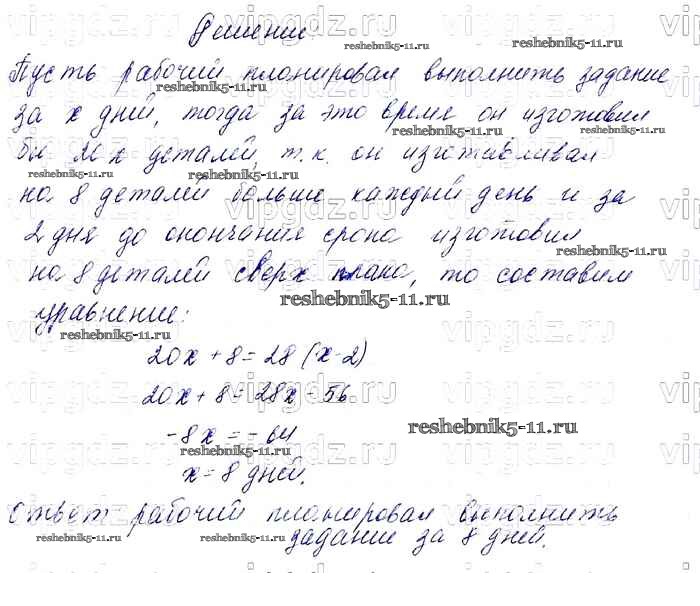 Решение
Пусть рабочий планировал выполнить задание
за x дней, тогда за это время он изготовил
бы деталей, т.к. он изготавливал
на 8 деталей больше каждый день и за
2 дня до окончания срока изготовил
на 8 деталей сверх плана, то составим
уравнение:
20x + 8 = 28 (x - 2)
20x + 8 = 28x - 56
-8x = -64
x = 8 дней.
Ответ рабочий планировал выполнить
задание за 8 дней.
vipgdz.ru
reshebnik5-11.ru